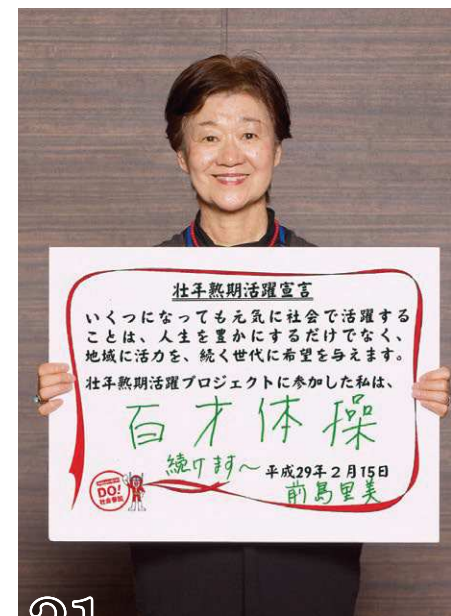 壮年熟期活躍宣言
いくつになっても元気に社会で活躍する
ことは、人生を豊かにするだけでなく、
地域に活力を、続く世代に希望を与えます。
壮年熟期活躍プロジェクトに参加した私は、
百才体操
続けます〜
平成29年2月15日
前島里美
DO!
社会参加
21